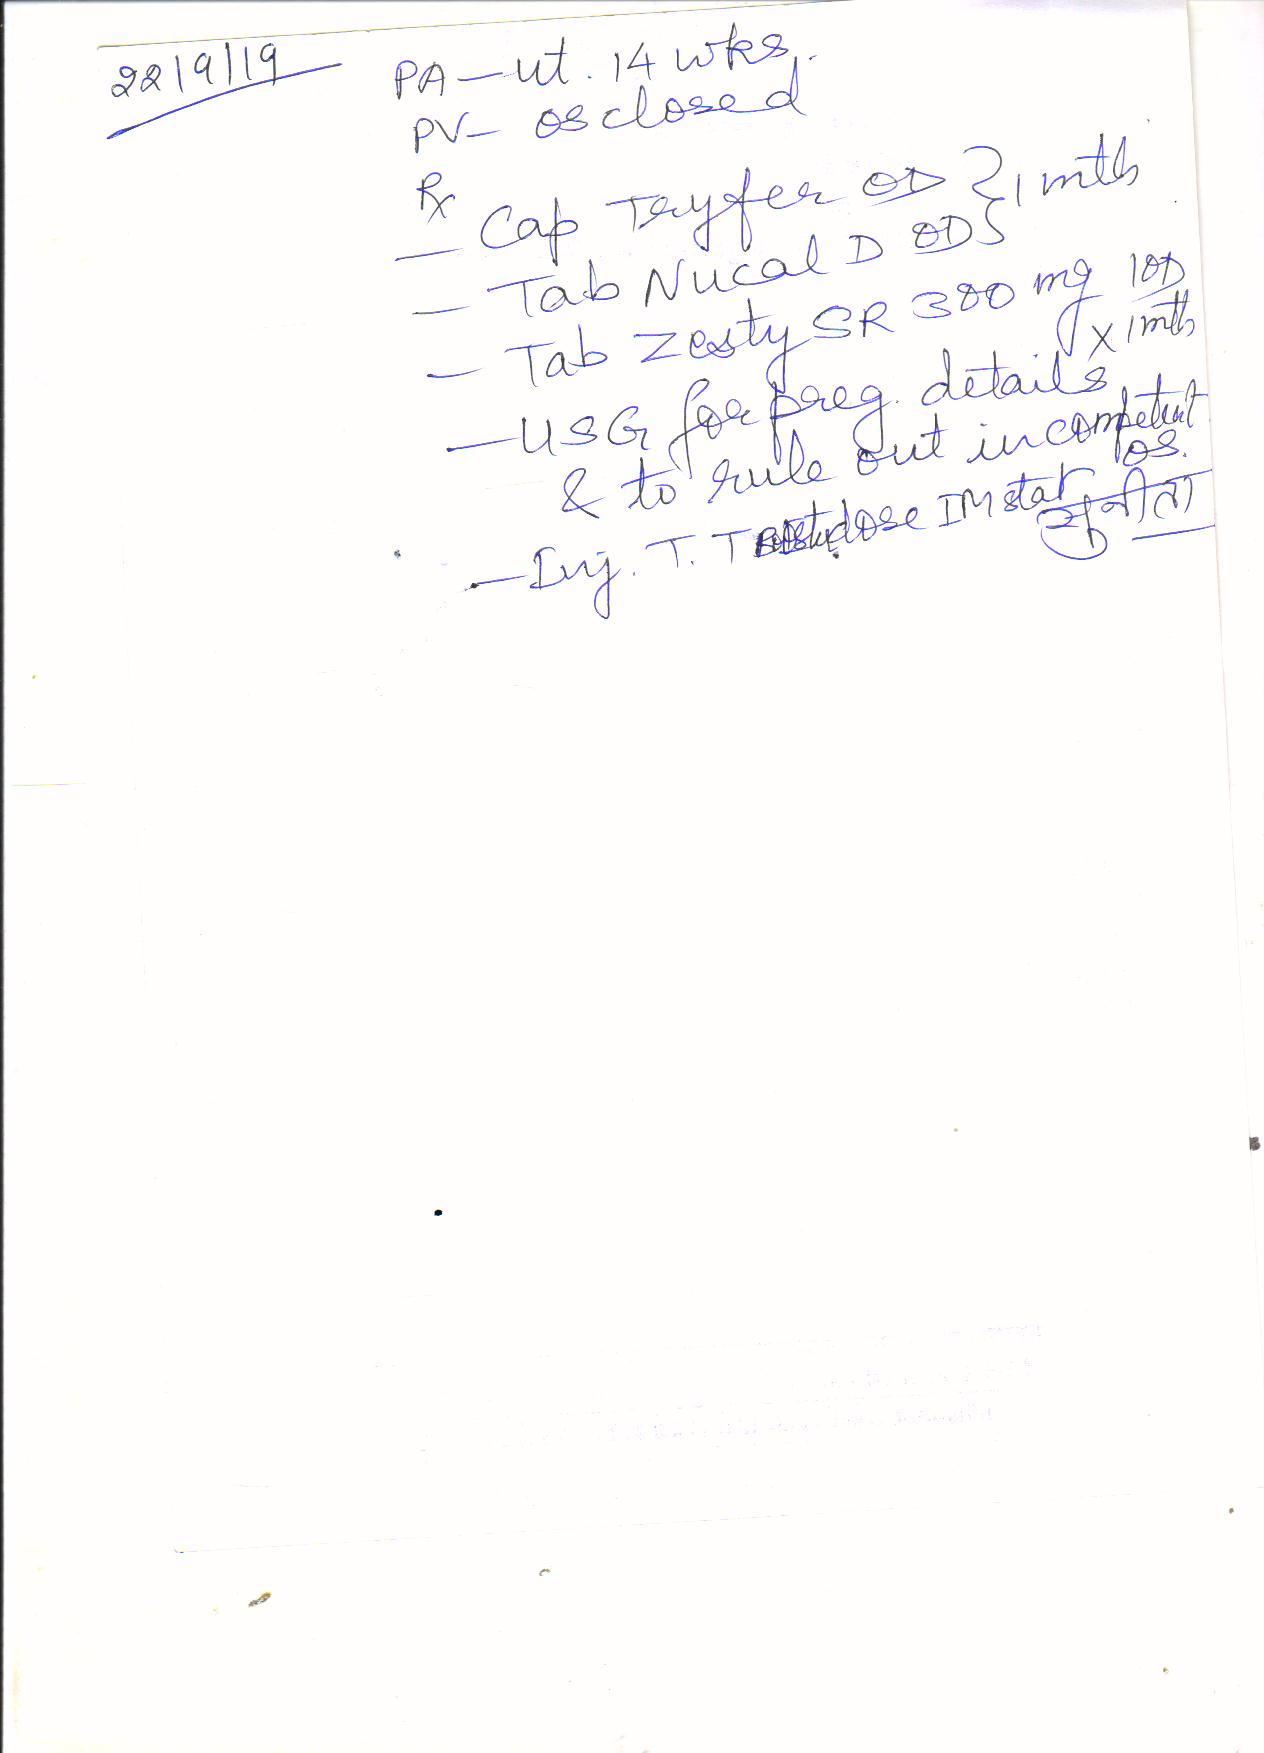 22/9/19
PA – ut. 14 wks.
PV – os closed
Rx
– Cap Tryfer OD } 1 mth
– Tab Nucal D OD
– Tab Zesty SR 300 mg 1OD
x 1 mth
– USG for preg. details
& to rule out incompetent
os.
– Inj. T.T dose IM stat
सुनीता